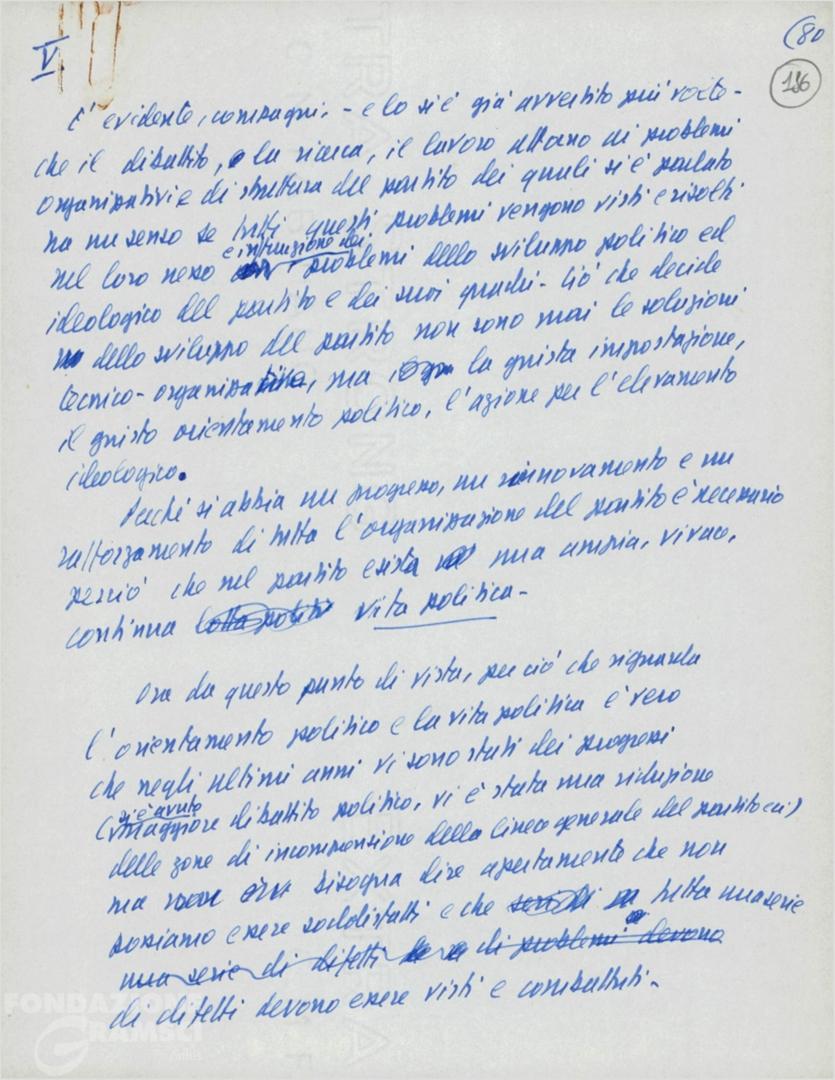 V.
(80
186
E' evidente, compagni, - e lo si è già avvertito più volte -
che il dibattito, e la ricerca, il lavoro attorno ai problemi
organizzativi e di struttura del partito dei quali si è parlato
ha un senso se tutti questi problemi vengono visti e risolti
e in funzione dei
nel loro nesso problemi dello sviluppo politico ed
ideologico del partito e dei suoi quadri - Ciò che decide
dello sviluppo del partito non sono mai le soluzioni
tecnico-organizzative, ma la giusta impostazione,
il giusto orientamento politico, l'azione per l'elevamento
ideologico.
Perché si abbia un progresso, un rinnovamento e un
rafforzamento di tutta l'organizzazione del partito è necessario
perciò che nel partito esista una ampia, vivace,
continua lotta politi vita politica -
Ora da questo punto di vista, per ciò che riguarda
l'orientamento politico e la vita politica è vero
che negli ultimi anni vi sono stati dei progressi
si è avuto
(maggiore dibattito politico, vi è stata una riduzione
delle zone di incomprensione della linea generale del partito ecc)
ma bisogna dire apertamente che non
possiamo essere soddisfatti e che tutta una serie
una serie di difetti di problemi devono
di difetti devono essere visti e combattuti -
FONDAZIONE
GRAMSCI